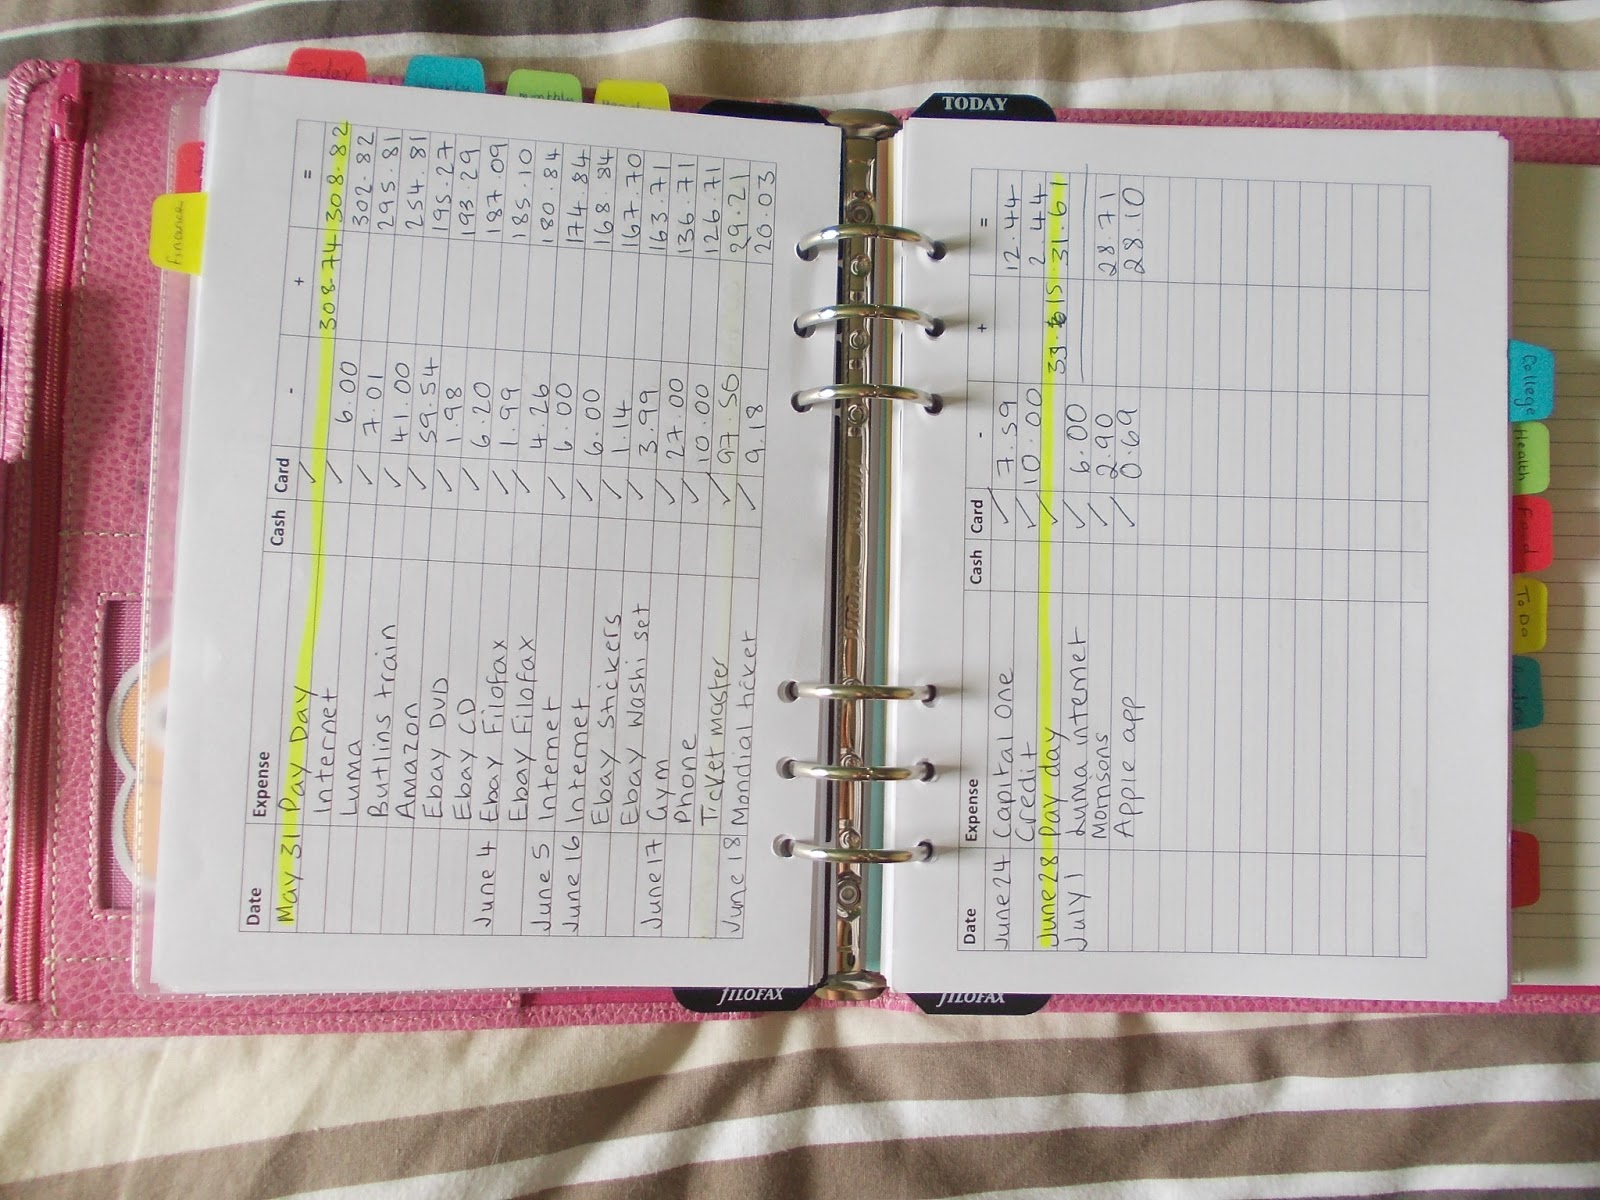 Date Expense Cash Card - + =
May 31 Pay Day ✓ 308.74 308.82
Internet ✓ 6.00 302.82
Luma ✓ 7.01 295.81
Butlins train ✓ 41.00 254.81
Amazon ✓ 59.54 195.27
Ebay DVD ✓ 1.98 193.29
Ebay CD ✓ 6.20 187.09
June 4 Ebay Filofax ✓ 1.99 185.10
Ebay Filofax ✓ 4.26 180.84
June 5 Internet ✓ 6.00 174.84
June 16 Internet ✓ 6.00 168.84
Ebay Stickers ✓ 1.14 167.70
Ebay Washi set ✓ 3.99 163.71
June 17 Gym ✓ 27.00 136.71
Phone ✓ 10.00 126.71
Ticketmaster ✓ 97.50 29.21
June 18 Mondial ticket ✓ 9.18 20.03
Date Expense Cash Card - + =
June 24 Capital One ✓ 7.59 12.44
Credit ✓ 10.00 2.44
June 28 Pay day ✓ 31.61
July 1 Luma internet ✓ 6.00
Morrisons ✓ 2.90 28.71
Apple app ✓ 0.69 28.10
Today
Finance
TODAY
FILOFAX
FILOFAX
College
Health
Food
To Do